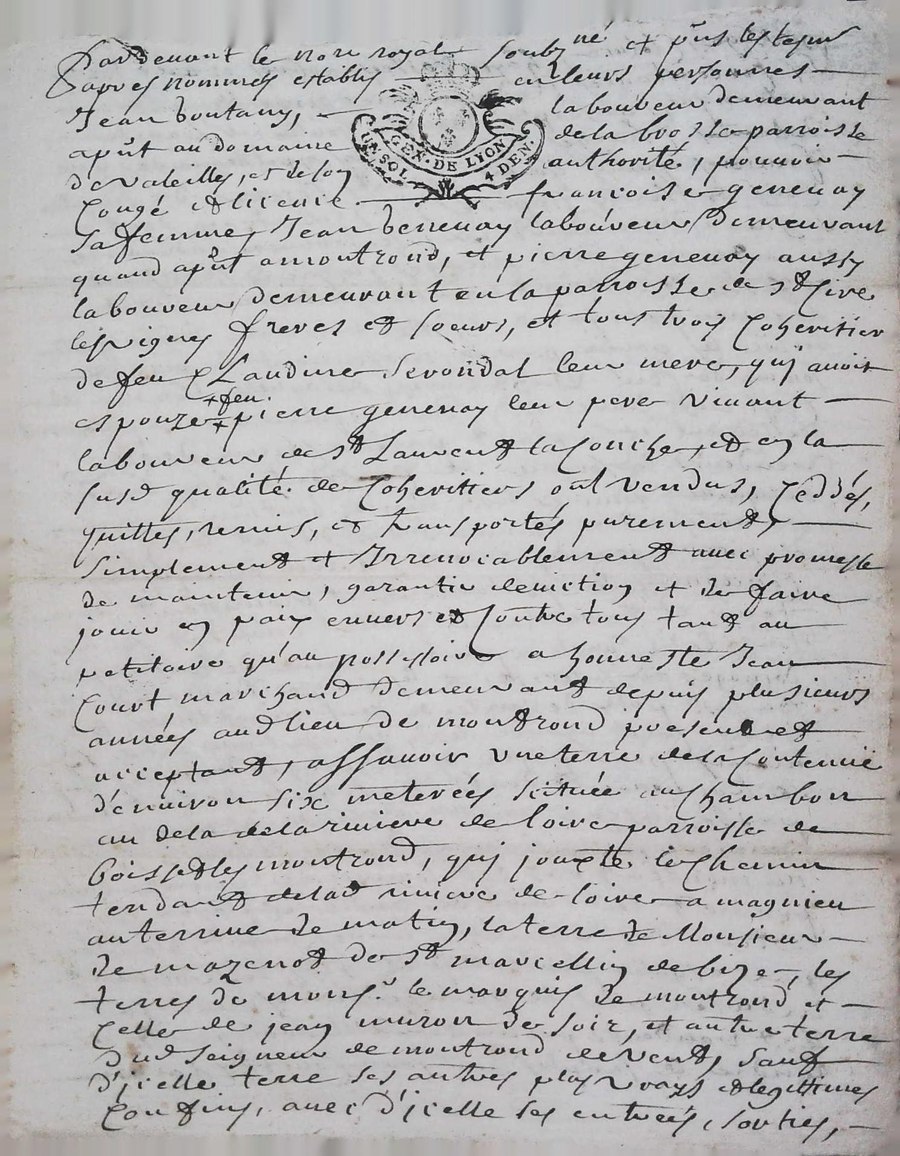 Pardevant le nore royal soubzné et pñts les tesms
apres nommés establis en leurs personnes
Jean boutany, laboureur demeurant
apñt au domaine de la brosse parroisse
de valeilles, et de son authorité, pouvoir
Congé et licence françoise genenay
Sa femme, Jean genenay laboureur demeurant
quand apñt a montrond, et pierre genenay aussy
laboureur demeurant en la parroisse de st Cire
les vignes freres et soeurs, et tous trois Coheritier
de feu Claudine Revondal leur mere, qui avoit
espouze +feu+ pierre genenay leur pere vivant
laboureur de st Laurent la Conche, et en la
susd qualité de Coheritiers ont vendus, Ceddés,
quittes, remis, et transportés purement,
Simplement et Irrevocablement avec promesse
de maintenir, garantir deviction et de faire
jouir en paix envers et Contre tous tant au
petitoire qu'au possessoire a honneste Jean
Court marchand demeurant depuis plusieurs
années aud lieu de montrond present et
acceptant, assavoir une terre de la Contenüe
d'environ six meterées scituée au Chambon
au dela de la riviere de loire parroisse de
boisset les montrond, qui jouxte le Chemin
tendant de lad riviere de loire a magnieu
auterrive de matin, la terre de Monsieur
de mazenod de st marcellin de bize, les
terres de monsr. le marquis de montrond et
Celle de jean muron de soir, et autre terre
dud seigneur de montrond de vent, sauf
d'icelle terre ses autres plus vrays et legittimes
Confins, avec d'icelle ses entrées, sorties,
GEN. DE LYON
UN SOL 4 DEN.